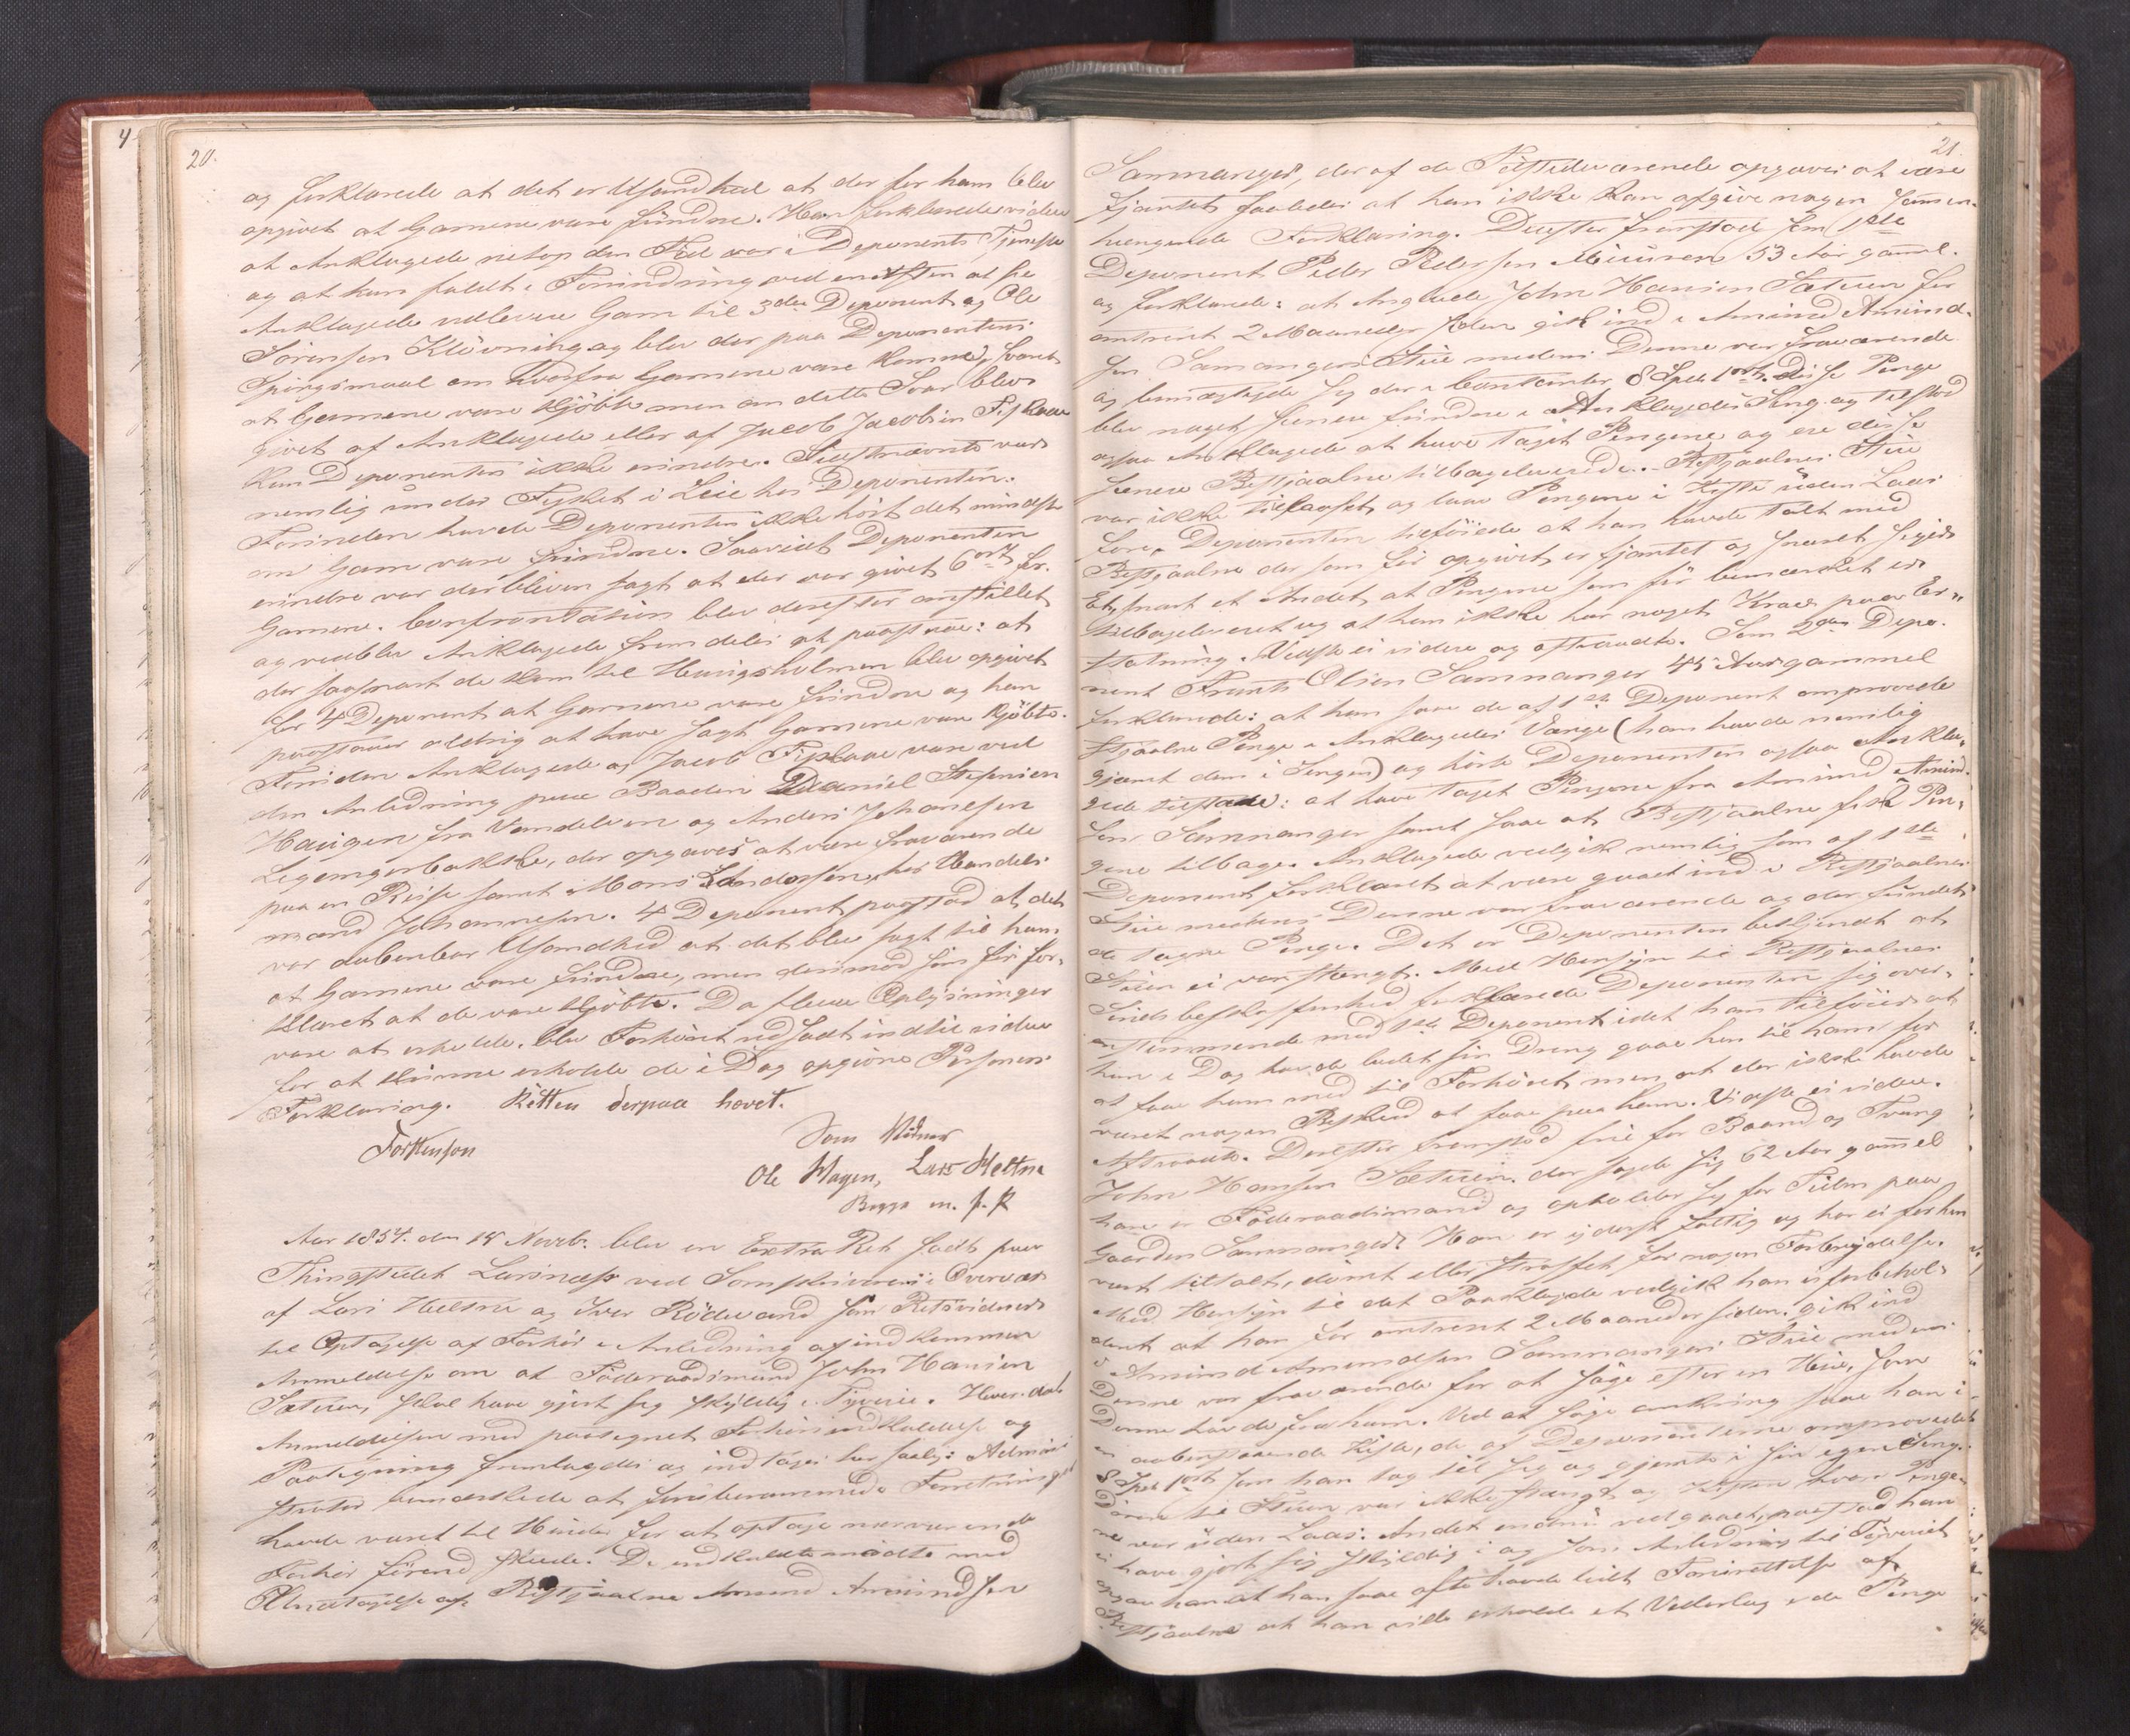 20.
og forklarede at det er Usandhed at der for ham blev
opgivet at Garnene vare fundne. Han forklarede videre
at Anklagede netop den Tid var i Deponents Tjeneste
og at han faldt i Forundring ved en Aften at see
Anklagede udlevere Garn til 3die Deponent og Ole
Sørensen Kløvning og blev der paa Deponentens
Spørgsmaal om hvorfra Garnene vare komne, svaret
at Garnene vare kjøbte men om dette Svar blev
givet af Anklagede eller af Jacob Jacobsen Fiplaae
kan Deponenten ikke erindre. Sidstnævnte var
nemlig under Fisket i Leie hos Deponenten.
Forinden havde Deponenten ikke hørt det mindste
om Garn vare fundne. Saavidt Deponenten
erindre var der bleven sagt at der var givet 6 ort for
Garnene. Confrontation blev derefter anstillet
og vedblev Anklagede fremdeles at paastaae: at
der saasnart de kom til Haugsholmen blev opgivet
for 4 Deponent at Garnene vare fundne og han
paastaaer aldrig at have sagt Garnene vare kjøbte.
Foruden Anklagede og Jacob Fiplaae vare ved
den Anledning paa Baaden Daniel Stefensen
Haugen fra Vandelven og Anders Johansen
Legemgerbakke, der opgaves at være fraværende
paa en Reise samt Mons Andersen, hos Handels
mand Johannesen. 4 Deponent paastod at det
var aabenbar Usandhed at det blev sagt til ham
at Garnene vare fundne, men derimod som før for-
klaret at de vare kjøbte. Da flere Oplysninger
vare at erholde, blev Forhøret udsadt indtil videre
for at kunne erholde de i Dag opgivne Personers
Forklaring. Retten derpaa hævet.
Torstenson
Som Vidner
Ole Hagen, Lars Heltne
Begge m. f. P
Aar 1854. den 15 Novb. blev en Extra Ret sadt paa
Thingstedet Larsnæs ved Sorenskriveren i Overvær
af Lars Heltne og Iver Rødevand som Retsvidner
til Optagelse af Forhør i Anledning af indkommen
Anmeldelse om at Føderaadsmand John Hansen
Sætren, skal have gjort sig skyldig i Tyverie.
Anmeldelsen med paategnet Forhørsindkaldelse og
Paategning fremlagdes og indtages her saal: Admini
strator bemærkede at foreberammede Forretninger
havde været til Hinder for at optage nærværende
Forhør førend skeede. De indkaldte mødte med
Undtagelse af Bestjaalne Amund Amundsen
21.
Samnanger, der af de Tilstedeværende opgaves at være
fjantet saaledes at han ikke kan afgive nogen sammen-
hængende Forklaring. Derefter fremstod som 1ste
Deponent Peder Pedersen Muuren 53 Aar gammel.
og forklarede: at Angivede John Hansen Sætren for
omtrent 2 Maaneder siden gik ind i Amund Amund-
sen Samnangers Stue medens Denne var fraværende
og bemægtigede sig der i Contanter 8 Spd 1 ort. Disse Penge
blev noget senere fundne i Anklagedes Seng og tilstod
ogsaa Anklagede at have taget Pengene og ere disse
senere Bestjaalne tilbageleverede. Bestjaalnes Stue
var ikke tillaaset, og laae Pengene i Kiste uden Laas
fore. Deponenten tilføiede at han havde talt med
Bestjaalne der som før opgivet er fjantet og snart siger
Et, snart et Andet, at Pengene som før bemærket er
tilbageleveret og at han ikke har noget Krav paa Er-
statning. Vidste ei videre og aftraadte. Som 2den Depo-
nent Frants Olsen Samnanger 45 Aar gammel
forklarede: at han saae de af 1ste Deponent omprovede
stjaalne Penge i Anklagedes Værge (han havde nemlig
gjemt dem i Sengen) og hørte Deponenten ogsaa Ankla-
gede tilstaae: at have taget Pengene fra Amund Amund-
sen Samnanger samt saae at Bestjaalne fik Pen-
gene tilbage. Anklagede vedgik nemlig som af 1ste
Deponent forklaret at være gaaet ind i Bestjaalnes
Stue medens Denne var fraværende og der fundet
de tagne Penge. Det er Deponenten bekjendt at
Stuen ei var stængt. Med Hensyn til Bestjaalnes
Sindsbeskaffenhed forklarede Deponenten sig over-
eenstemmende med 1ste Deponent idet han tilføiede at
han i Dag havde ladet sin Dreng gaae hen til ham for
at faae ham med til Forhøret men at der ikke havde
været nogen Besked at faae paa ham. Vidste ei videre.
Aftraadte. Derefter fremstod frie for Baand og Tvang
John Hansen Sætren, der sagde sig 62 Aar gammel
han er Føderaadsmand og opholder sig for Tiden paa
Gaarden Samnanger. Han er yderst fattig og har ei forhen
været tiltalt, dømt eller straffet for nogen Forbrydelse.
Med Hensyn til det Paaklagede vedgik han uforbehol-
dent at han for omtrent 2 Maaneder siden, gik ind
i Amund Amundsen Samnangers Stue medens
Denne var fraværende for at søge efter en Hue, som
Denne havde fra ham. Ved at søge omkring saae han i
en aabenstaaende Kiste, de af Deponenterne omprovede
8 Spd 1 ort som han tog til sig og gjemte i sin egen Seng.
Døren til Stuen var ikke stængt og Kisten hvori Penge-
ne var uden Laas. Andet endnu vedgaaet, paastod han
ei have gjort sig skyldig i og som Anledning til Tyveriet
opgav han at han saa ofte havde lidt Forurettelse af
Bestjaalne at han ville erholde et Vederlag i de Penge